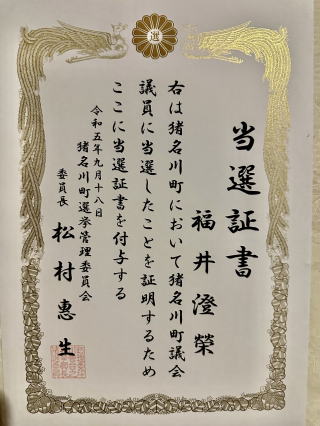 選
当選証書
福井澄榮
右は猪名川町において猪名川町議会
議員に当選したことを証明するため
ここに当選証書を付与する
令和五年九月十八日
猪名川町選挙管理委員会
委員長 松村惠生